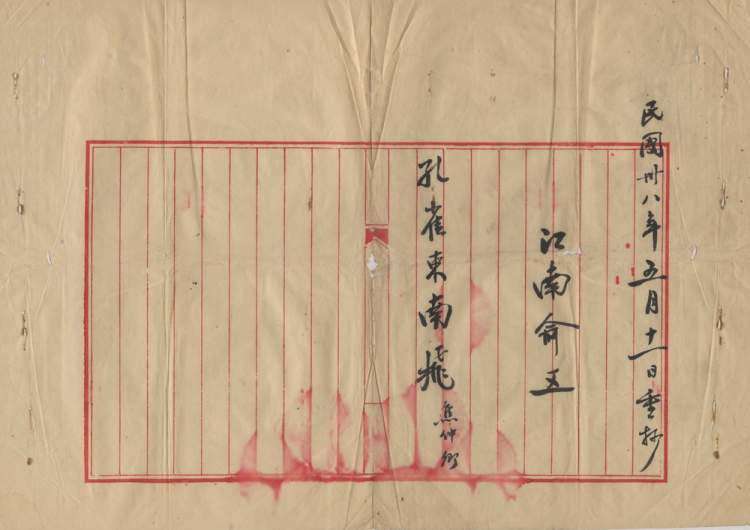 民國卅八年五月十一日重抄
江南俞五
孔雀東南飛 焦仲卿